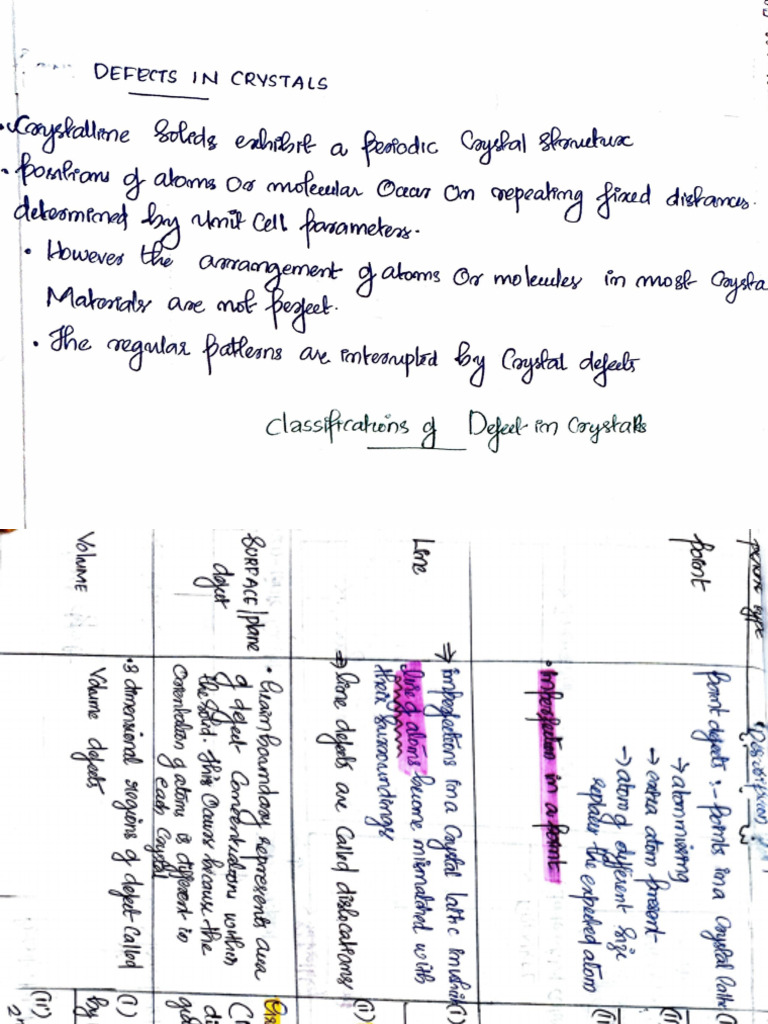 DEFECTS IN CRYSTALS
• Crystalline Solids exhibit a periodic Crystal structure
• positions of atoms or molecular Occur on repeating fixed distances.
determined by Unit Cell parameters.
• However the arrangement of atoms Or molecules in most Crysta
Materials are not perfect.
• The regular patterns are interrupted by Crystal defects
Classifications of Defect in Crystals
type
Description
point
point defects :- points in a Crystal lattic
→ atom missing
→ extra atom present
→ atom of different size
replaces the expected atom
• Imperfection in a point
(i)
(ii)
(ii)
Line
⇒ imperfections in a Crystal lattic in which
line of atoms become mismatched with
their surroundings
⇒ line defects are Called dislocations
(i)
(ii)
SURFACE/plane
defect
• Grain boundary represents ava
of defect Concentrations within
the Solid. This Occurs because the
orientation of atoms is different in
each Crystal
VOLUME
• 3 dimensional regions of defect Called
Volume defects
(i)
by
(ii)